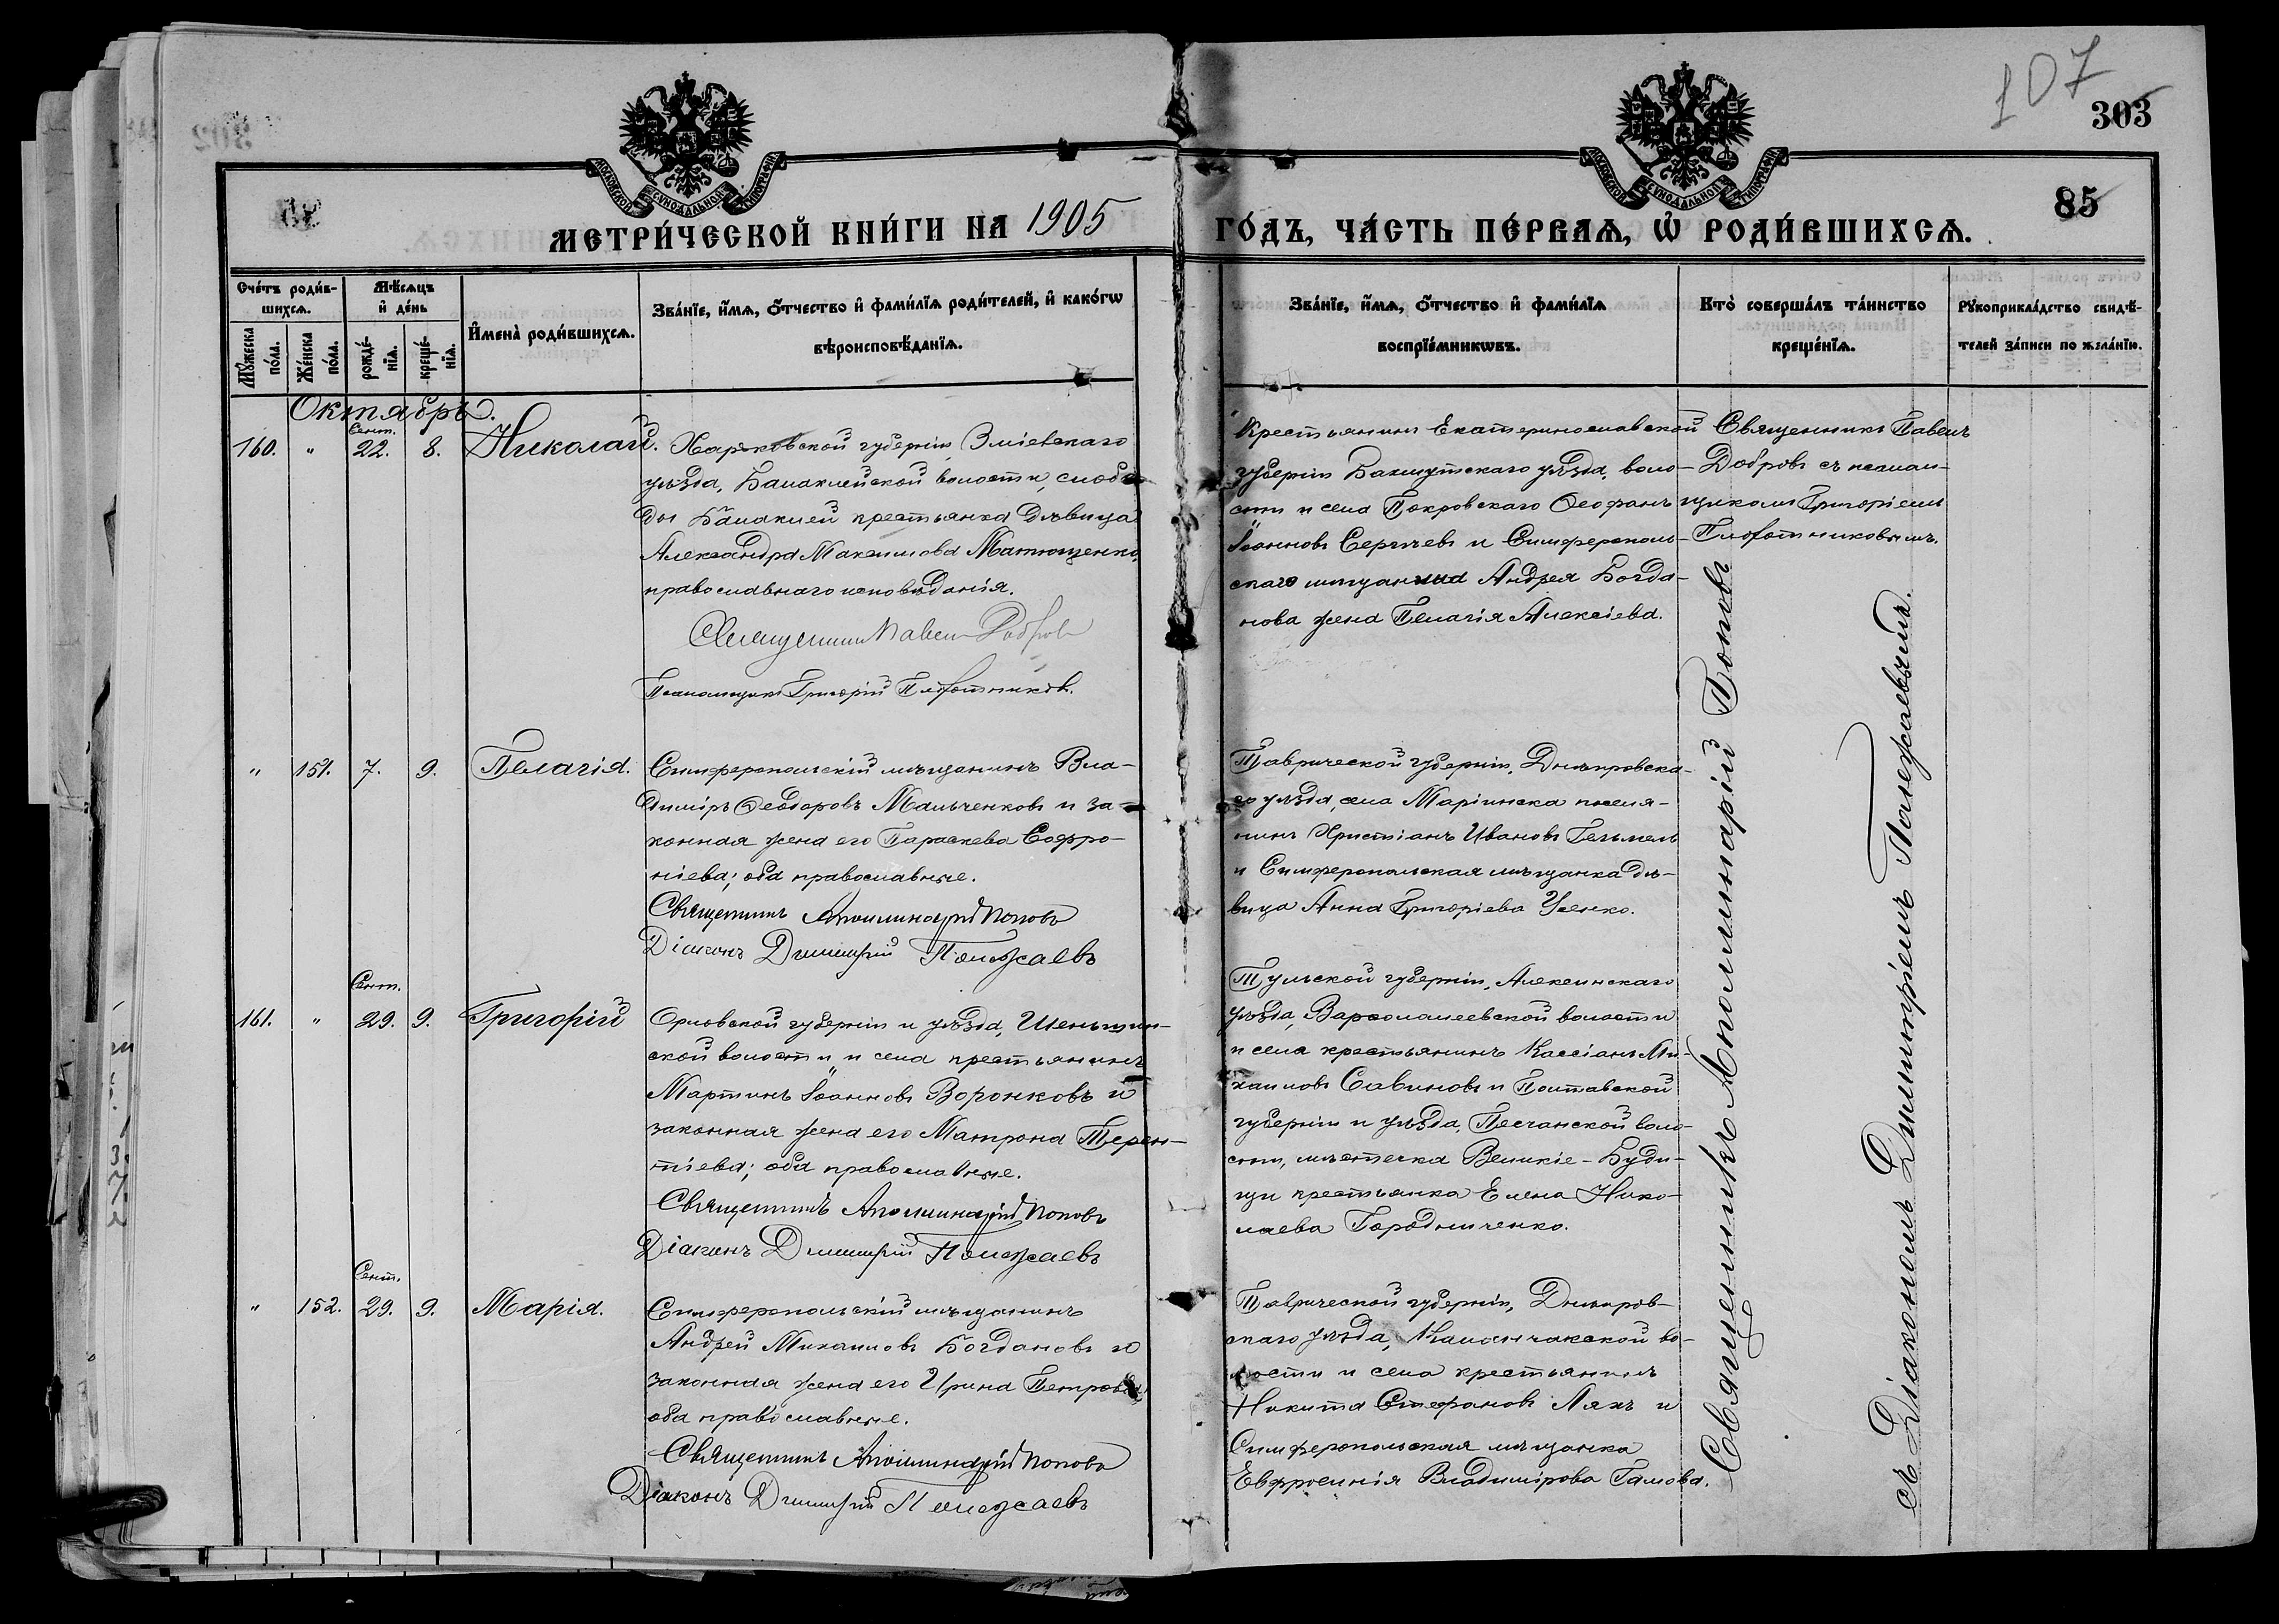 107
303
85
МОСКОВСКОЙ СѴНОДАЛЬНОЙ ТИПОГРАФІИ
МОСКОВСКОЙ СѴНОДАЛЬНОЙ ТИПОГРАФІИ
МЕТРИ́ЧЕСКОЙ КНИ́ГИ НА 1905 ГО́ДЪ, ЧА́СТЬ ПЕ́РВАѦ, Ѡ҆ РОДИ́ВШИХСѦ.
Сче́тъ роди́в-
шихсѧ.
Мѣ́сѧцъ
и҆ де́нь
Мꙋ́жеска по́ла.
Же́нска по́ла.
рожде́-
нїѧ.
креще́-
нїѧ.
И҆мена̀ роди́вшихсѧ.
Зва́нїе, и҆́мѧ, ѻ҆́тчество и҆ фами́лїѧ роди́телей, и҆ како́гѡ
вѣроисповѣ́данїѧ.
Зва́нїе, и҆́мѧ, ѻ҆́тчество и҆ фами́лїѧ
воспрїе́мникѡвъ.
Кто̀ соверша́лъ та́инство
креще́нїѧ.
Рꙋкоприкла́дство свидѣ́-
телей за́писи по жела́нїю.
Октябрь.
160. " Сент. 22. 8. Николай.
Харьковской губерніи, Зміевскаго
уѣзда, Балаклейской волости, слобо-
ды Балаклеи крестьянка дѣвица
Александра Максимова Матющенко,
православнаго исповѣданія.
Священникъ Павелъ Добровъ
Псаломщикъ Григорій Плотниковъ.
Крестьянинъ Екатеринославской
губерніи Бахмутскаго уѣзда, воло-
сти и села Покровскаго Ѳеофанъ
Іоанновъ Сергѣевъ и Симферополь-
скаго мѣщанина Андрея Богда-
нова жена Пелагія Алексіева.
Священникъ Павелъ
Добровъ съ псалом-
щикомъ Григоріемъ
Плотниковымъ.
" 151. 7. 9. Пелагія.
Симферопольскій мѣщанинъ Вла-
диміръ Ѳеодоровъ Мальченковъ и за-
конная жена его Параскева Софро-
ніева; оба православные.
Священникъ Аполлинарій Поповъ
Діаконъ Димитрій Полежаевъ
Таврической губерніи, Днѣпровска-
го уѣзда, села Маріинска поселя-
нинъ Христіанъ Ивановъ Гельмель
и Симферопольская мѣщанка дѣ-
вица Анна Григоріева Усенко.
161. " Сент. 29. 9. Григорій
Орловской губерніи и уѣзда, Шеньшин-
ской волости и села крестьянинъ
Мартинъ Іоанновъ Воронковъ и
законная жена его Матрона Терен-
тіева; оба православные.
Священникъ Аполлинарій Поповъ
Діаконъ Димитрій Полежаевъ
Тульской губерніи, Алексинскаго
уѣзда, Варѳоломеевской волости
и села крестьянинъ Кассіанъ Ми-
хаиловъ Савиновъ и Полтавской
губерніи и уѣзда, Песчанской воло-
сти, мѣстечка Великіе-Буди-
щи крестьянка Елена Нико-
лаева Городниченко.
" 152. Сент. 29. 9. Марія.
Симферопольскій мѣщанинъ
Андрей Михаиловъ Богдановъ и
законная жена его Ирина Петрова;
оба православные.
Священникъ Аполлинарій Поповъ
Діаконъ Димитрій Полежаевъ
Таврической губерніи, Днѣпров-
скаго уѣзда, Каланчакской во-
лости и села крестьянинъ
Никита Стефановъ Ляхъ и
Симферопольская мѣщанка
Евфросинія Владимірова Гамова.
Священникъ Аполлинарій Поповъ
съ Діакономъ Димитріемъ Полежаевымъ.